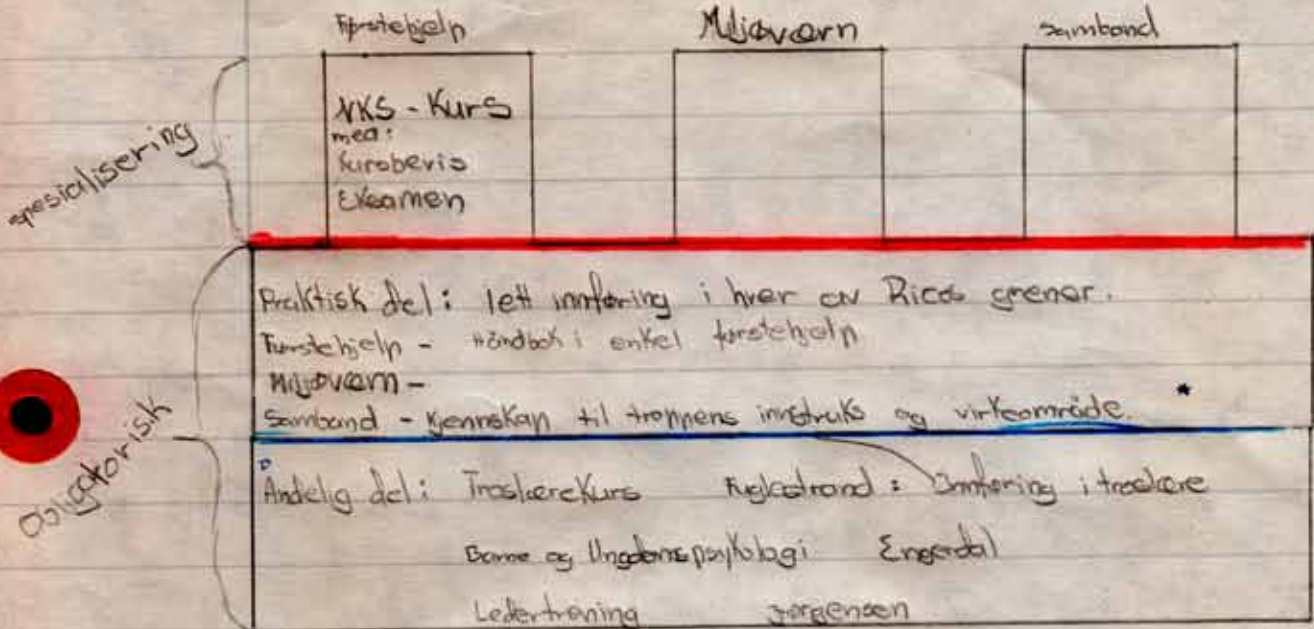 Førstehjelp Miljøvern Samband
spesialisering
NKS - Kurs
med:
Kursbevis
Eksamen
Obligatorisk
Praktisk del: lett innføring i hver av Ricas grener.
Førstehjelp - Håndbok i enkel førstehjelp
Miljøvern -
Samband - Kjennskap til troppens instruks og virkeområde. *
Åndelig del: Troslærekurs Fuglestrand: Innføring i troslære
Barne og Ungdomspsykologi Engerdal
Ledertrening Jørgensen